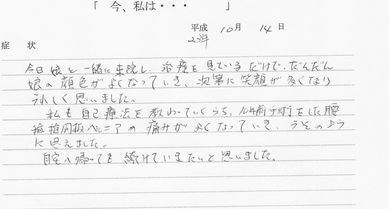 「 今、私は・・・ 」
平成 23年 10月 14日
症 状
今日娘と一緒に来院し、治療を見ているだけで、だんだん
娘の顔色がよくなっていき、次第に笑顔が多くなり
うれしく思いました。
私も自己療法を教わっていくうち、10年前手術をした腰
椎椎間板ヘルニアの痛みがよくなっていき、うそのよう
に思えました。
自宅へ帰っても続けていきたいと思いました。